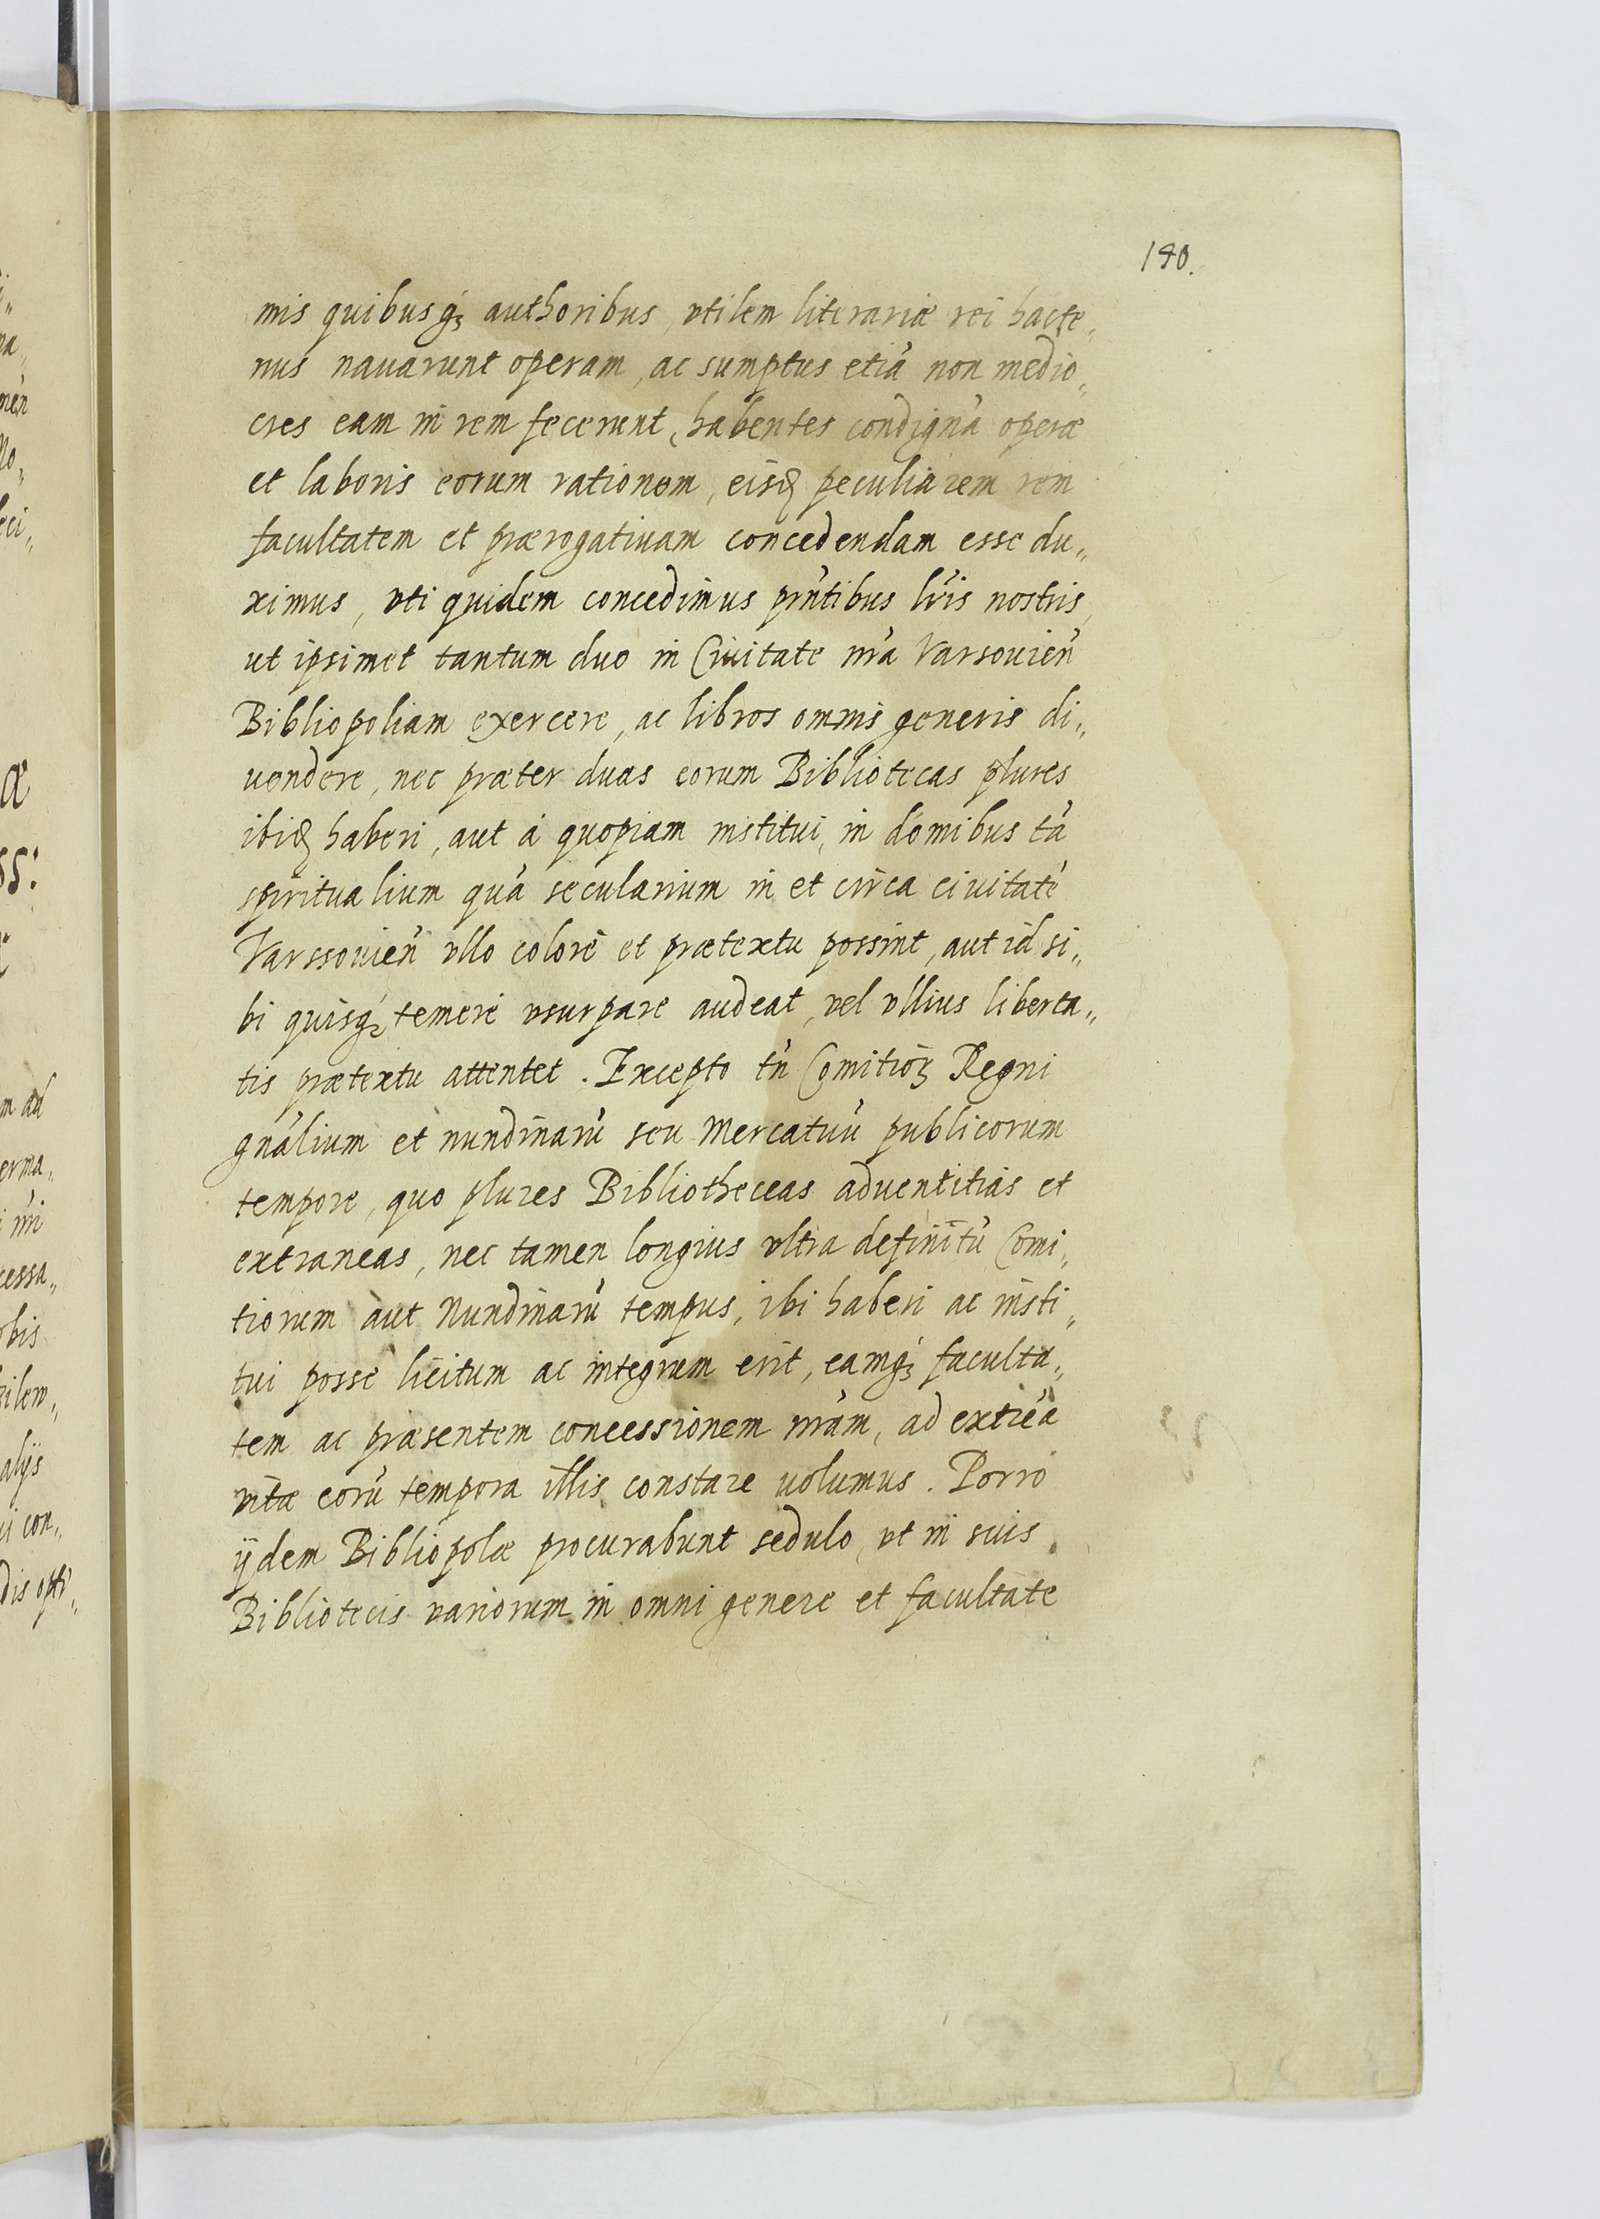 190.
mis quibusq; authoribus, vtilem literariæ rei hacte„
nus nauarunt operam, ac sumptus etiā non medio„
cres eam in rem fecerunt, habentes condignā operæ
et laboris eorum rationem, eisd peculiarem rem
facultatem et prærogatiuam concedendam esse du„
ximus, vti quidem concedimus pñtibus lr̃is nostris,
ut ipsimet tantum duo in Ciuitate nr̃a Varsouień
Bibliopoliam exercere, ac libros omnis generis di„
uendere, nec præter duas eorum Bibliotecas plures
ibid haberi, aut á quopiam institui, in domibus tā
spiritualium quā secularium in et circa ciuitatē
Varssouień vllo colore et prætextu possint, aut id si„
bi quisq; temere vsurpare audeat, vel vllius liberta„
tis prætextu attentet. Excepto tñ Comitioꝝ Regni
gñalium et nundinarū seu Mercatuū publicorum
tempore, quo plures Bibliotheceas aduentitias et
extraneas, nec tamen longius vltra definitū Comi„
tiorum aut Nundinarū tempus, ibi haberi ac insti„
tui posse licitum ac integrum erit, eamq; faculta„
tem ac præsentem concessionem nr̃am, ad extrēa
vitæ eorū tempora illis constare uolumus. Porro
ijdem Bibliopolæ procurabunt sedulo, vt in suis
Bibliotecis variorum in omni genere et facultate